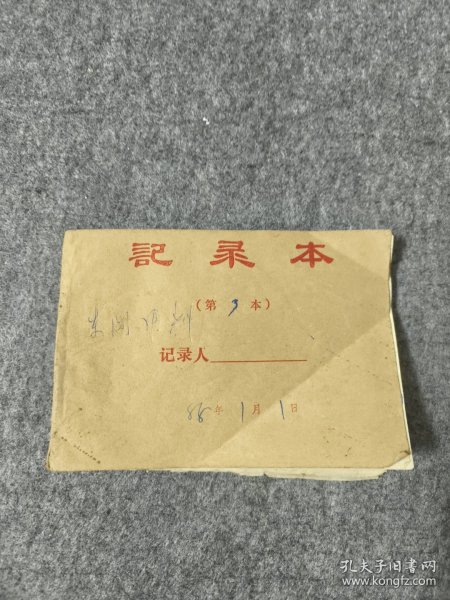 記录本
(第 3 本)
记录人
88年1月1日
孔夫子旧书网
www.kongfz.com